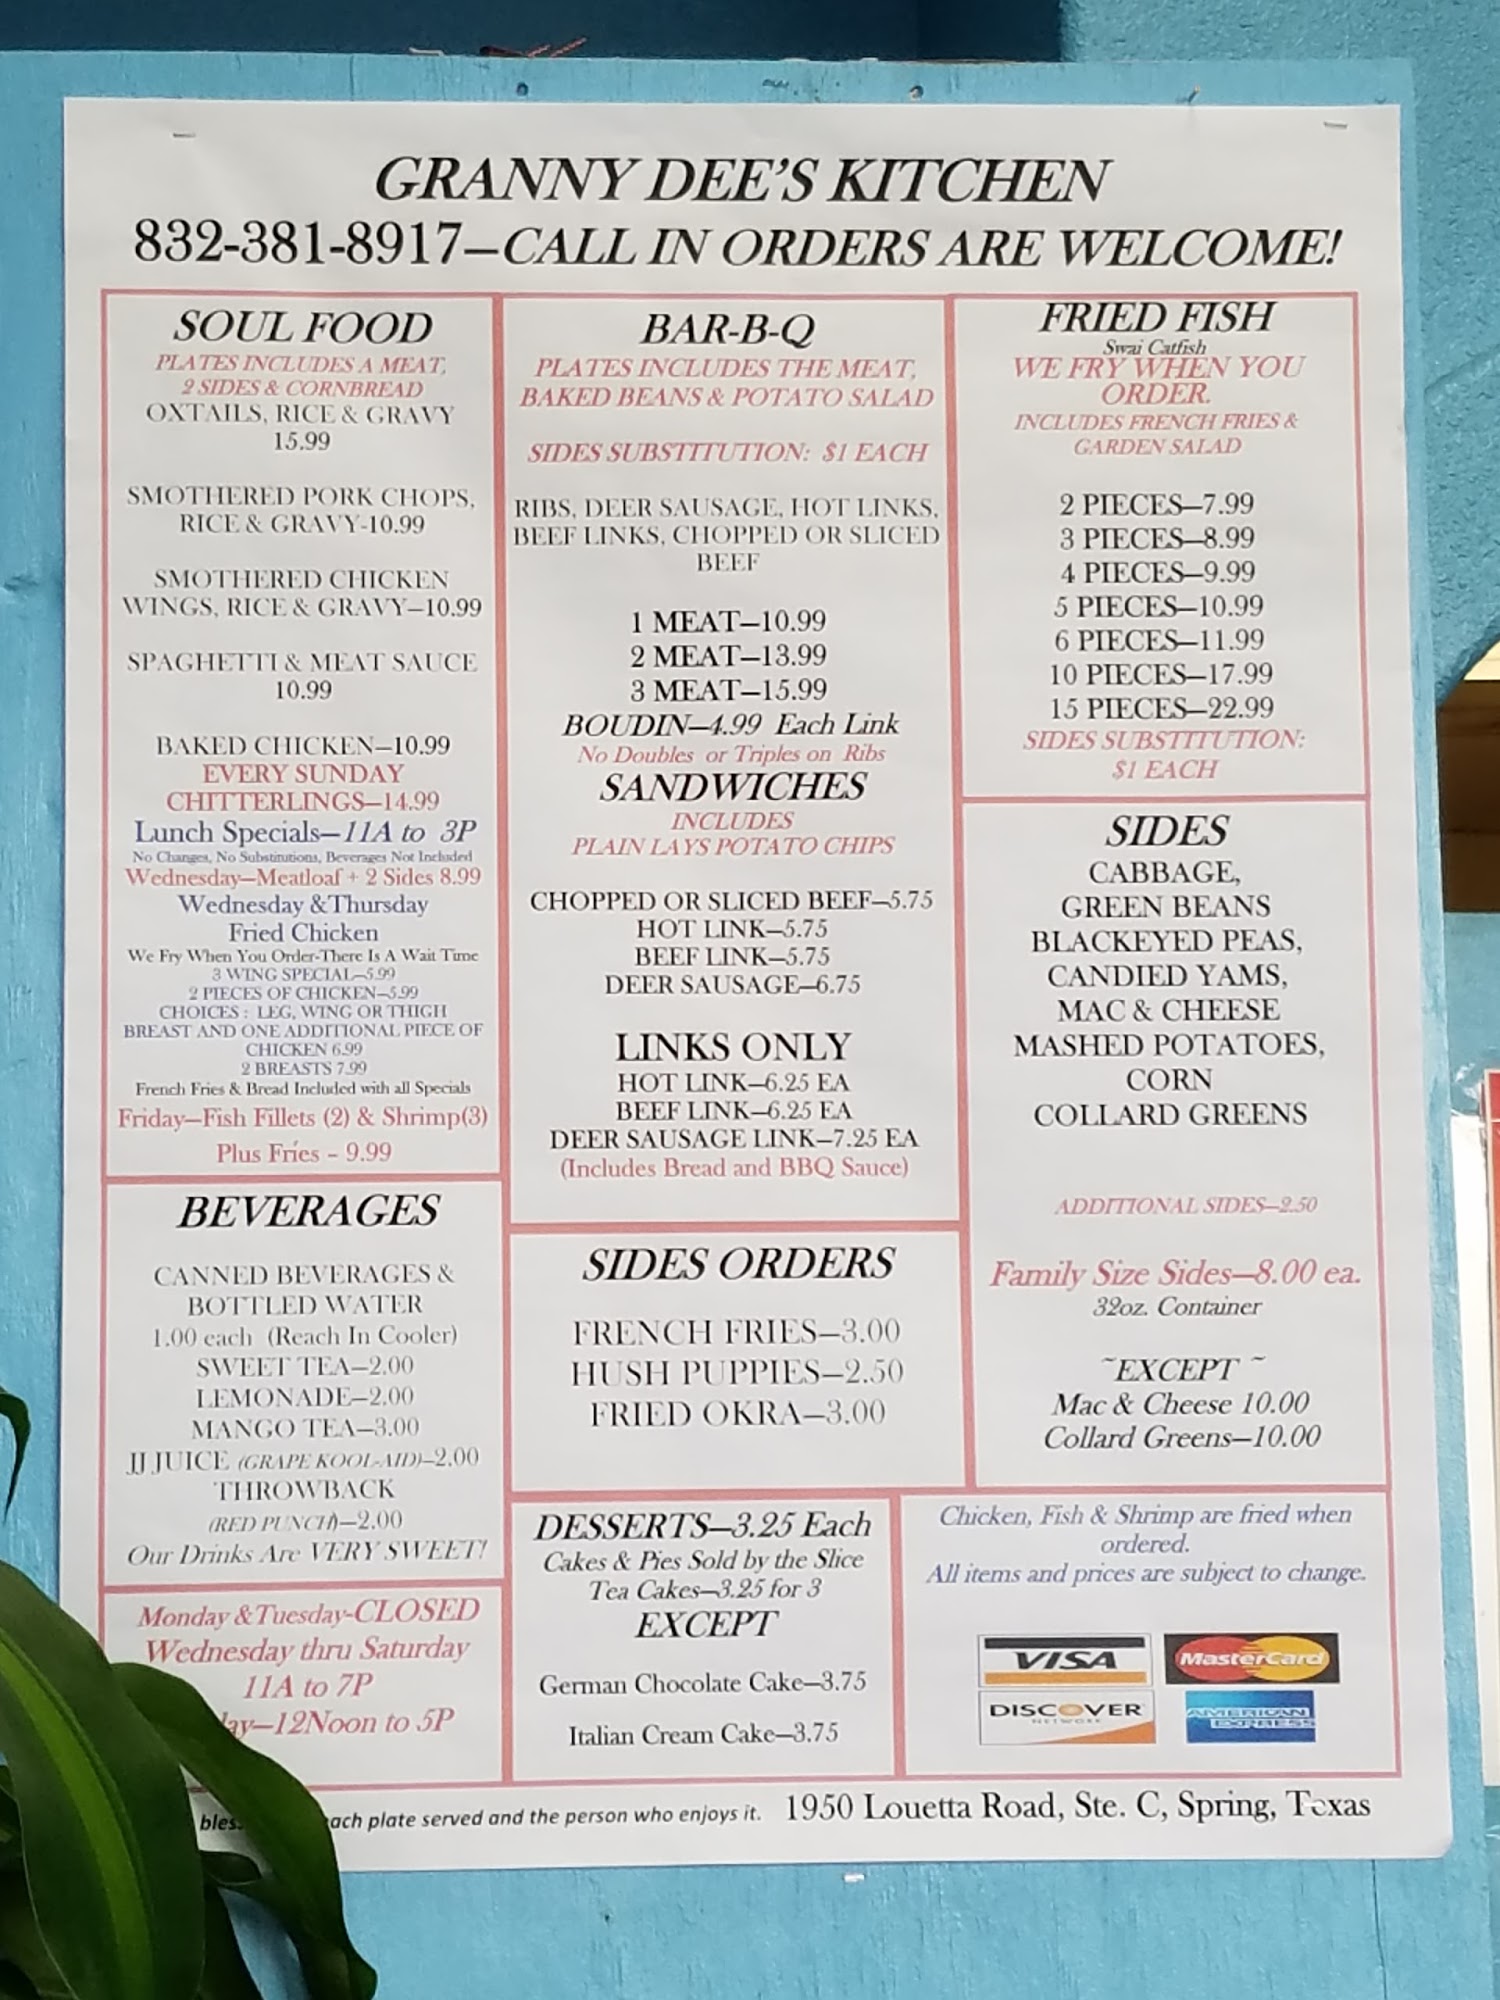 GRANNY DEE'S KITCHEN
832-381-8917—CALL IN ORDERS ARE WELCOME!
SOUL FOOD
PLATES INCLUDES A MEAT,
2 SIDES & CORNBREAD
OXTAILS, RICE & GRAVY
15.99
SMOTHERED PORK CHOPS,
RICE & GRAVY-10.99
SMOTHERED CHICKEN
WINGS, RICE & GRAVY—10.99
SPAGHETTI & MEAT SAUCE
10.99
BAKED CHICKEN—10.99
EVERY SUNDAY
CHITTERLINGS—14.99
Lunch Specials—11A to 3P
No Changes, No Substitutions, Beverages Not Included
Wednesday—Meatloaf + 2 Sides 8.99
Wednesday &Thursday
Fried Chicken
We Fry When You Order-There Is A Wait Time
3 WING SPECIAL—5.99
2 PIECES OF CHICKEN—5.99
CHOICES : LEG, WING OR THIGH
BREAST AND ONE ADDITIONAL PIECE OF
CHICKEN 6.99
2 BREASTS 7.99
French Fries & Bread Included with all Specials
Friday—Fish Fillets (2) & Shrimp(3)
Plus Fries - 9.99
BEVERAGES
CANNED BEVERAGES &
BOTTLED WATER
1.00 each (Reach In Cooler)
SWEET TEA—2.00
LEMONADE—2.00
MANGO TEA—3.00
JJ JUICE (GRAPE KOOL-AID)—2.00
THROWBACK
(RED PUNCH)—2.00
Our Drinks Are VERY SWEET!
Monday &Tuesday-CLOSED
Wednesday thru Saturday
11A to 7P
—12Noon to 5P
BAR-B-Q
PLATES INCLUDES THE MEAT,
BAKED BEANS & POTATO SALAD
SIDES SUBSTITUTION: $1 EACH
RIBS, DEER SAUSAGE, HOT LINKS,
BEEF LINKS, CHOPPED OR SLICED
BEEF
1 MEAT—10.99
2 MEAT—13.99
3 MEAT—15.99
BOUDIN—4.99 Each Link
No Doubles or Triples on Ribs
SANDWICHES
INCLUDES
PLAIN LAYS POTATO CHIPS
CHOPPED OR SLICED BEEF—5.75
HOT LINK—5.75
BEEF LINK—5.75
DEER SAUSAGE—6.75
LINKS ONLY
HOT LINK—6.25 EA
BEEF LINK—6.25 EA
DEER SAUSAGE LINK—7.25 EA
(Includes Bread and BBQ Sauce)
SIDES ORDERS
FRENCH FRIES—3.00
HUSH PUPPIES—2.50
FRIED OKRA—3.00
DESSERTS—3.25 Each
Cakes & Pies Sold by the Slice
Tea Cakes—3.25 for 3
EXCEPT
German Chocolate Cake—3.75
Italian Cream Cake—3.75
FRIED FISH
Swai Catfish
WE FRY WHEN YOU
ORDER.
INCLUDES FRENCH FRIES &
GARDEN SALAD
2 PIECES—7.99
3 PIECES—8.99
4 PIECES—9.99
5 PIECES—10.99
6 PIECES—11.99
10 PIECES—17.99
15 PIECES—22.99
SIDES SUBSTITUTION:
$1 EACH
SIDES
CABBAGE,
GREEN BEANS
BLACKEYED PEAS,
CANDIED YAMS,
MAC & CHEESE
MASHED POTATOES,
CORN
COLLARD GREENS
ADDITIONAL SIDES—2.50
Family Size Sides—8.00 ea.
32oz. Container
~EXCEPT ~
Mac & Cheese 10.00
Collard Greens—10.00
Chicken, Fish & Shrimp are fried when
ordered.
All items and prices are subject to change.
VISA
MasterCard
DISCOVER
NETWORK
AMERICAN
EXPRESS
plate served and the person who enjoys it. 1950 Louetta Road, Ste. C, Spring, Texas